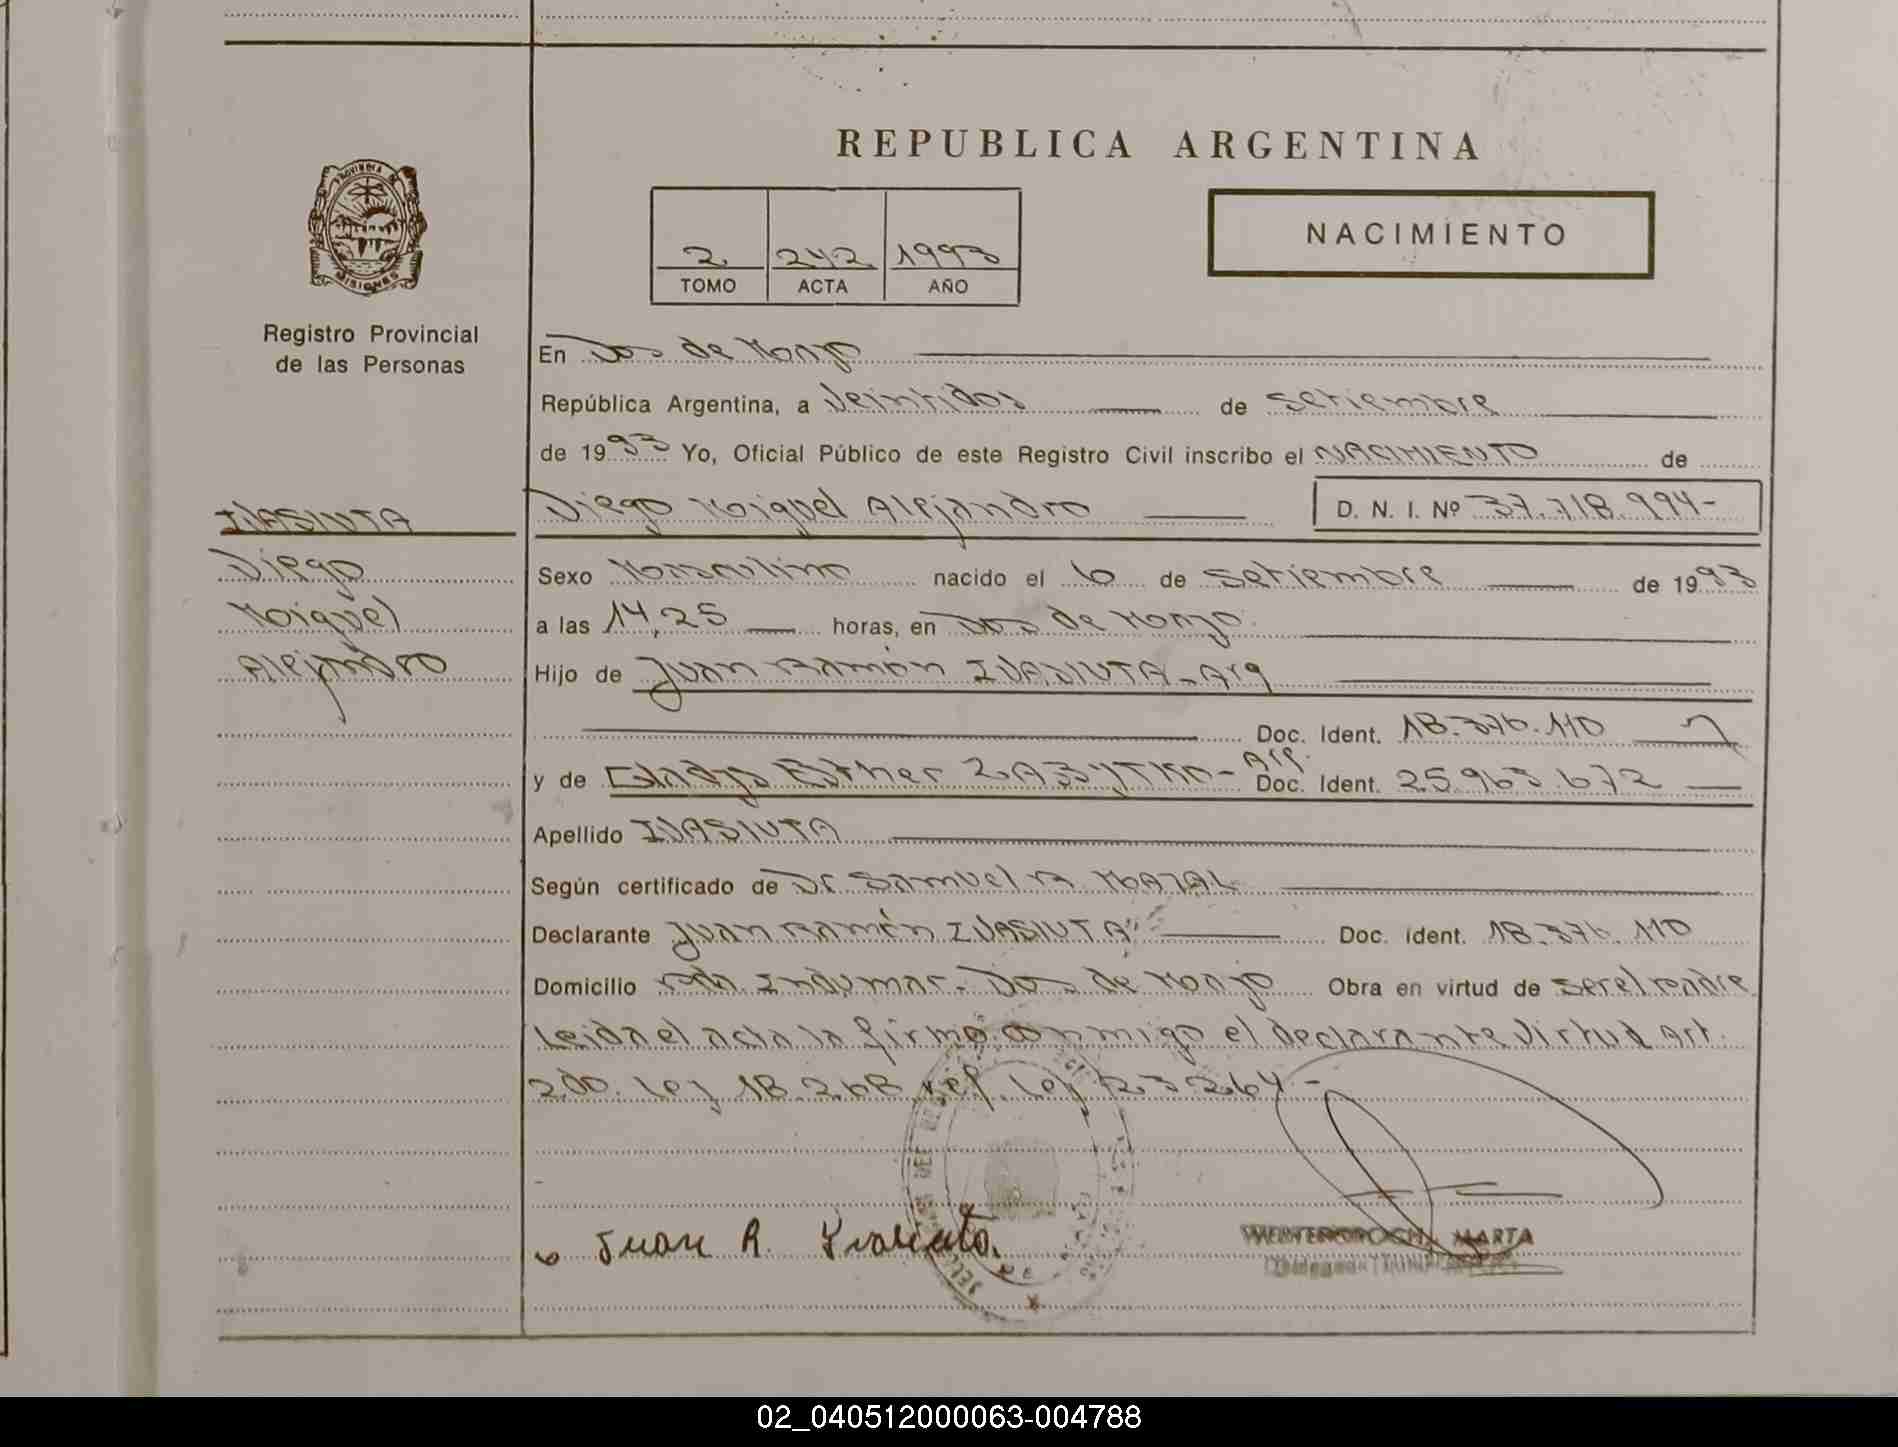 REPUBLICA ARGENTINA
PROVINCIA DE MISIONES
2 242 1993
TOMO ACTA AÑO
NACIMIENTO
Registro Provincial
de las Personas
En Dos de Mayo
República Argentina, a Veintidos de Setiembre
de 1993 Yo, Oficial Público de este Registro Civil inscribo el NACIMIENTO de
IVASIUTA
Diego Miguel Alejandro D. N. I. Nº 37.718.994-
Diego
Miguel
Alejandro
Sexo Masculino nacido el 6 de Setiembre de 1993
a las 14,25 horas, en Dos de Mayo
Hijo de Juan Ramón IVASIUTA - Arg
Doc. Ident. 18.376.110
y de Gladys Esther ZABYTKO - Arg. Doc. Ident. 25.963.672
Apellido IVASIUTA
Según certificado de Dr Samuel R
Declarante Juan Ramón IVASIUTA Doc. ident. 18.376.110
Domicilio Indumar. Dos de Mayo Obra en virtud de ser el padre
Leida el acta la firma conmigo el declarante virtud Art.
2do. Ley 18.268 ref. Ley 23.264 -
Juan R. Ivasiuta.
MARTA
02_040512000063-004788